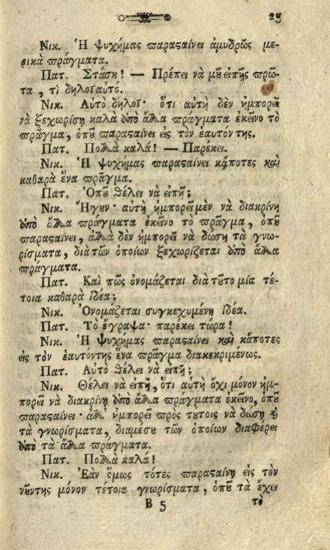 25
Νικ. Ἡ ψυχήμας παραςαίνει ἀμυδρῶς με-
ρικὰ πράγματα.
Πατ. Στάσου! — Πρέπει νὰ μȣ̃ εἰπῆς πρῶ-
τα, τί δηλοῖ αυτό.
Νικ. Αὐτὸ δηλοῖ· ὅτι αὐτὴ δὲν ἠμπορεῖ
νὰ ξεχωρίσῃ καλὰ ἀπὸ ἄλλα πράγματα ἐκεῖνο τὸ
πρᾶγμα, ὁπȣ̃ παραςαίνει εἰς τὸν ἑαυτόντης.
Πατ. Πολλὰ καλά! — Παρέκει.
Νικ. Ἡ ψυχήμας παραςαίνει κάποτες καὶ
καθαρὰ ἕνα πρᾶγμα.
Πατ. Ὁπȣ̃ θέλει νὰ εἰπῇ;
Νικ. Ἤγȣν· αὐτὴ ἠμπορεῖ μὲν νὰ διακρίνῃ
ἀπὸ ἄλλα πράγματα ἐκεῖνο τὸ πρᾶγμα, ὁπȣ̃
παραςαίνει, ἀλλὰ δὲν ἠμπορεῖ νὰ δώσῃ τὰ γνω-
ρίσματα, διὰ τῶν ὁποίων ξεχωρίζεται ἀπὸ ἄλλα
πράγματα.
Πατ. Καὶ πῶς ὀνομάζεται διὰ τȣ̃το μία τέ-
τοια καθαρὰ ἰδέα;
Νικ. Ὀνομάζεται συγκεχυμένη ἰδέα.
Πατ. Τὸ ἔγραψα· παρέκει τώρα!
Νικ. Ἡ ψυχήμας παραςαίνει καὶ κάποτες
εἰς τὸν ἑαυτόντης ἕνα πρᾶγμα διακεκριμένως.
Πατ. Αὐτὸ θέλει νὰ εἰπῇ;
Νικ. Θέλει νὰ εἰπῇ, ὅτι αὐτὴ ὄχι μόνον ἠμπο-
ρεῖ νὰ διακρίνῃ ἀπὸ ἄλλα πράγματα ἐκεῖνο, ὁπȣ̃
παραςαίνει· ἀλλ' ἠμπορεῖ πρὸς τȣ́τοις νὰ δώσῃ ȣ̓
τὰ γνωρίσματα, διαμέσȣ τῶν ὁποίων διαφέρει
ἀπὸ τὰ ἄλλα πράγματα.
Πατ. Πολλὰ καλά!
Νικ. Ἐὰν ὅμως τότες παραςαίνῃ εἰς τὸν
νȣ̃ντης μόνον τέτοια γνωρίσματα, ὁπȣ̃ τὰ ἔχει
B 5 τὸ